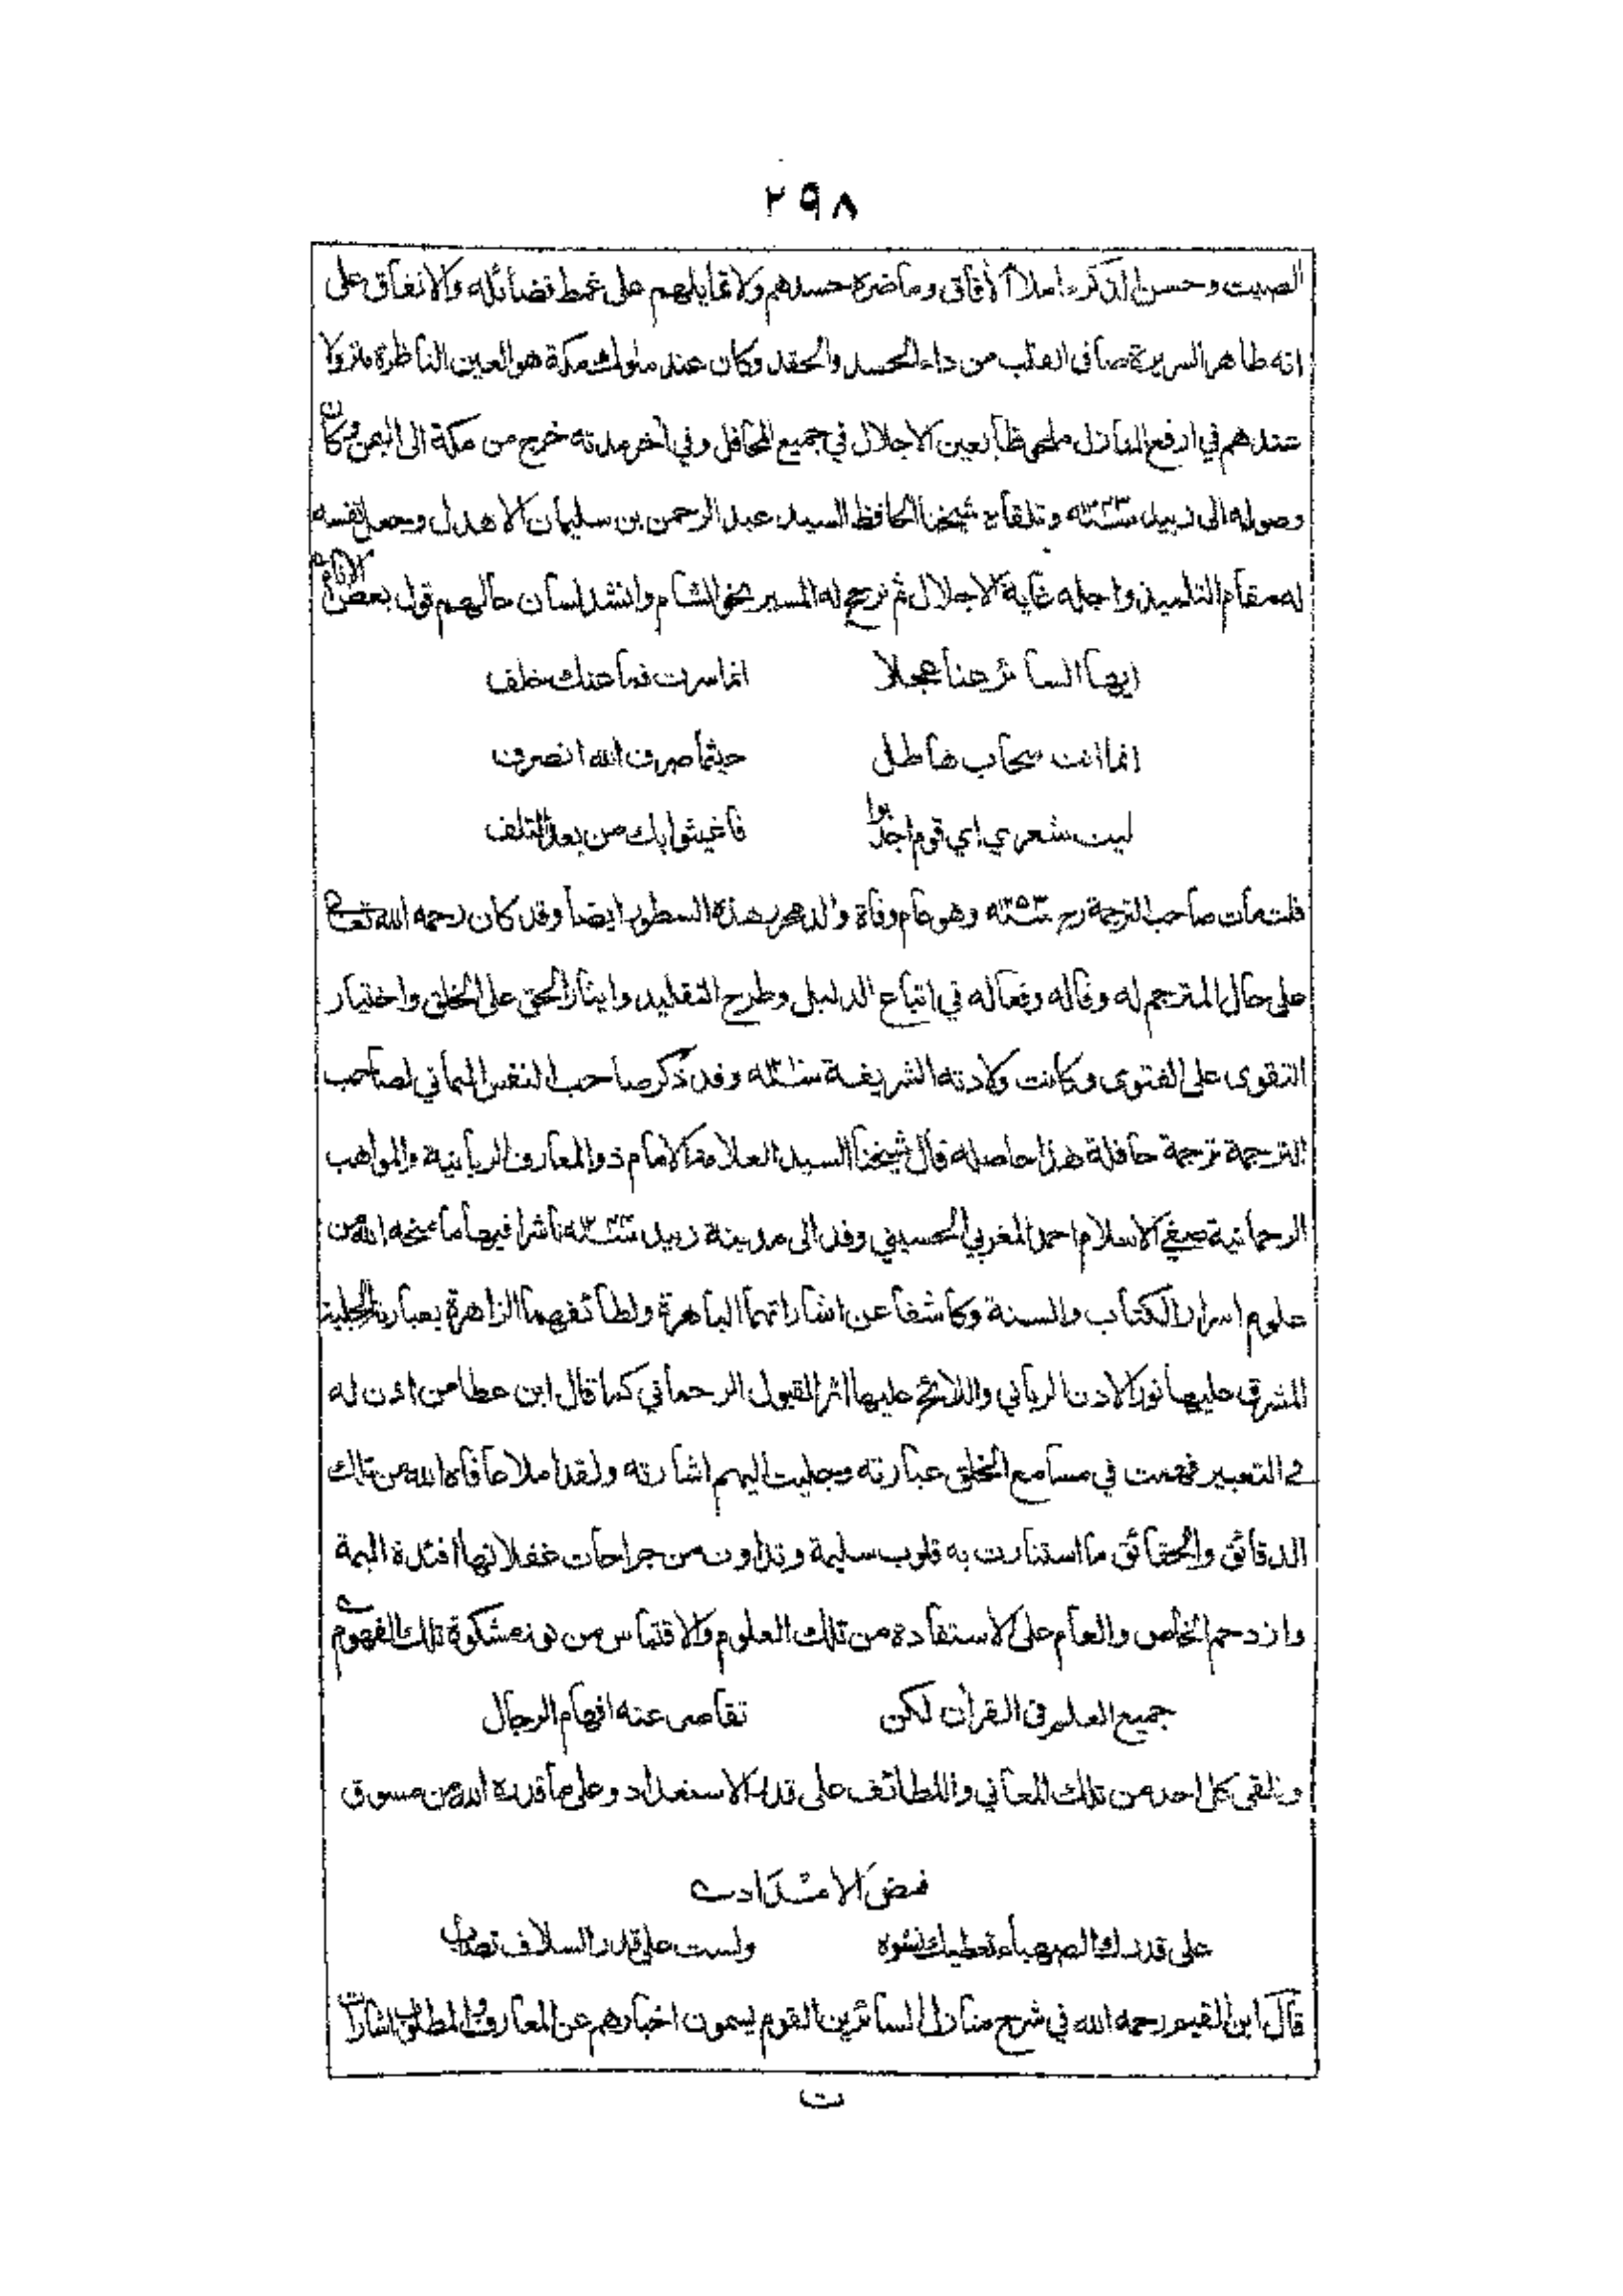 ٢٩٨
الصيت وحسن الذكر ما ملأ الآفاق وما ضره حسدهم ولا تمايلهم على غمط فضائله والاتفاق على
انه طاهر السريرة صافى القلب من داء الحسد والحقد وكان عند ملوك مكة هو العين الناظرة منزولا
عندهم في ارفع المنازل ملحوظا بعين الاجلال في جميع المحافل وفي آخر مدته خرج من مكة الى اليمن وكان
وصوله الى زبيد سنة وتلقاه شيخنا الحافظ السيد عبد الرحمن بن سليمان الاهدل وجعل نفسه
له مقام التلميذ واجله غاية الاجلال ثم ترجح له المسير نحو الشام وانشد لسان حالهم قول بعض
ايها السائر عنا عجلا انما سرت فما عنك خلف
انما انت سحاب هاطل حيثما صرف الله انصرف
ليت شعري اي قوم اجدبوا فاغيثوا بك من بعد التلف
قلت مات صاحب الترجمة رح وهو عام وفاة والد محرر هذه السطور ايضا وقد كان رحمه الله تعالى
على حال المترجم له وقاله وفعاله في اتباع الدليل وطرح التقليد وايثار الحق على الخلق واختيار
التقوى على الفتوى وكانت ولادته الشريفة وقد ذكر صاحب النفس اليماني لصاحب
الترجمة ترجمة حافلة هذا حاصله قال شيخنا السيد العلامة الامام ذو المعارف الربانية والمواهب
الرحمانية صفي الاسلام احمد المغربي الحسيني وفد الى مدينة زبيد ناشرا فيها ما منحه الله من
علوم اسرار الكتاب والسنة وكاشفا عن اشاراتهما الباهرة ولطائفهما الزاهرة بعبارته الجلية
المشرق عليها نور الاذن الرباني واللائح عليها اثر القبول الرحماني كما قال ابن عطا من اذن له
في التعبير فهمت في مسامع الخلق عبارته وجليت اليهم اشارته ولقد املا عافاه الله من تلك
الدقائق والحقائق ما استنارت به قلوب سليمة وتداوت من جراحات غفلاتها افئدة اليمة
وازدحم الخاص والعام على الاستفادة من تلك العلوم والاقتباس من نور مشكوة تلك الفهوم
جميع العلم في القرأن لكن تقاصر عنه افهام الرجال
وتلقى كل احد من تلك المعاني واللطائف على قدر الاستعداد وعلى ما قدره الله من مسوق
فيض الامتدادات
على قدرك الصهباء تعطيك نشوة ولست على قدر السلاف تصاب
قال ابن القيم رحمه الله في شرح منازل السائرين القوم يسمون اخبارهم عن المعارف والمطلوب اشارات
ت